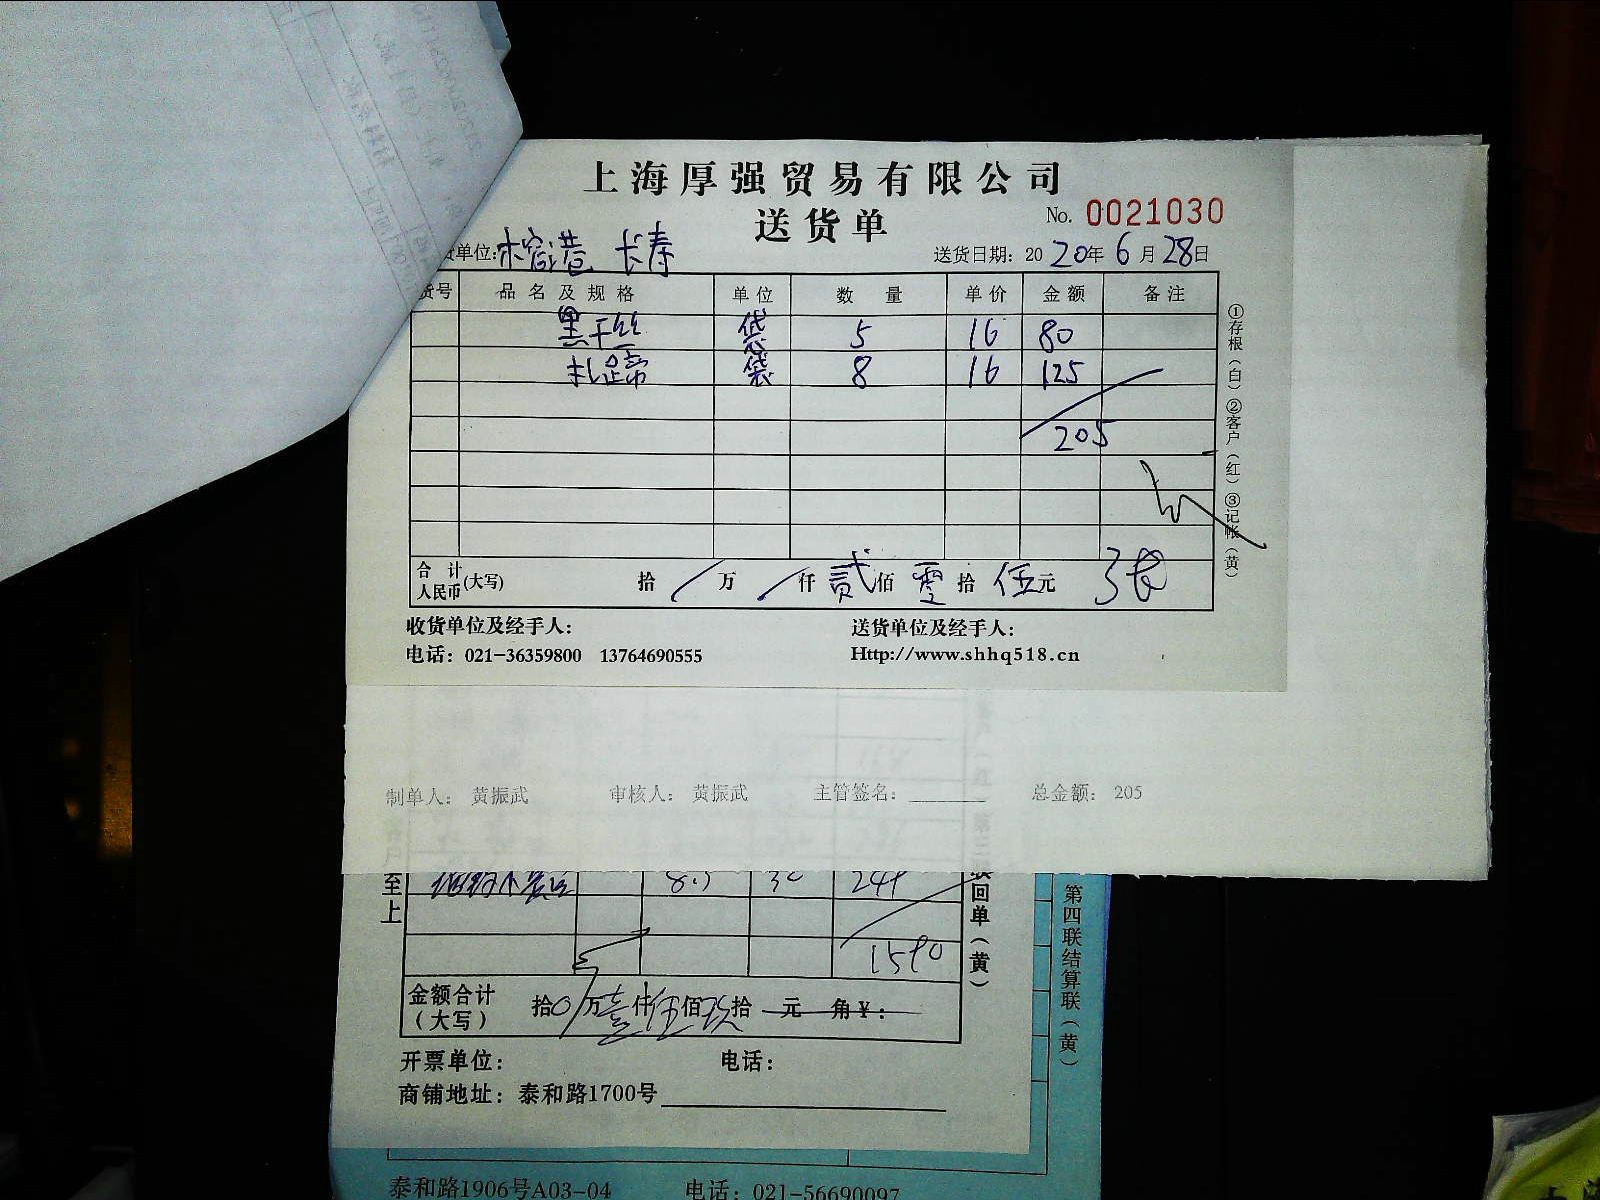 上海厚强贸易有限公司
送货单
No. 0021030
单位: 木窗港 长寿
送货日期: 2020年6月28日
货号 品名及规格 单位 数量 单价 金额 备注
黑干丝 袋 5 16 80
扎蹄 袋 8 16 125
205
合计人民币(大写) 拾 万 仟 贰佰 零拾 伍元
①存根(白)②客户(红)③记帐(黄)
收货单位及经手人:
送货单位及经手人:
电话: 021-36359800 13764690555
Http://www.shhq518.cn
制单人: 黄振武 审核人: 黄振武 主管签名: 总金额: 205
至上
回单(黄)
1590
金额合计(大写) 拾0万壹仟伍佰玖拾 元 角¥:
开票单位: 电话:
商铺地址: 泰和路1700号
第四联结算联(黄)
泰和路1906号A03-04 电话: 021-56690097